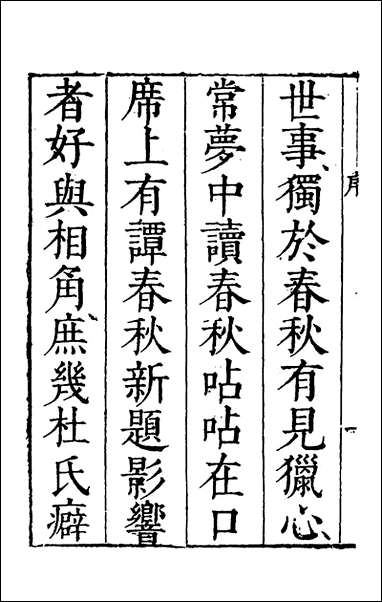 世事獨於春秋有見獵心
常夢中讀春秋呫呫在口
席上有譚春秋新題影響
者好與相角庶幾杜氏癖